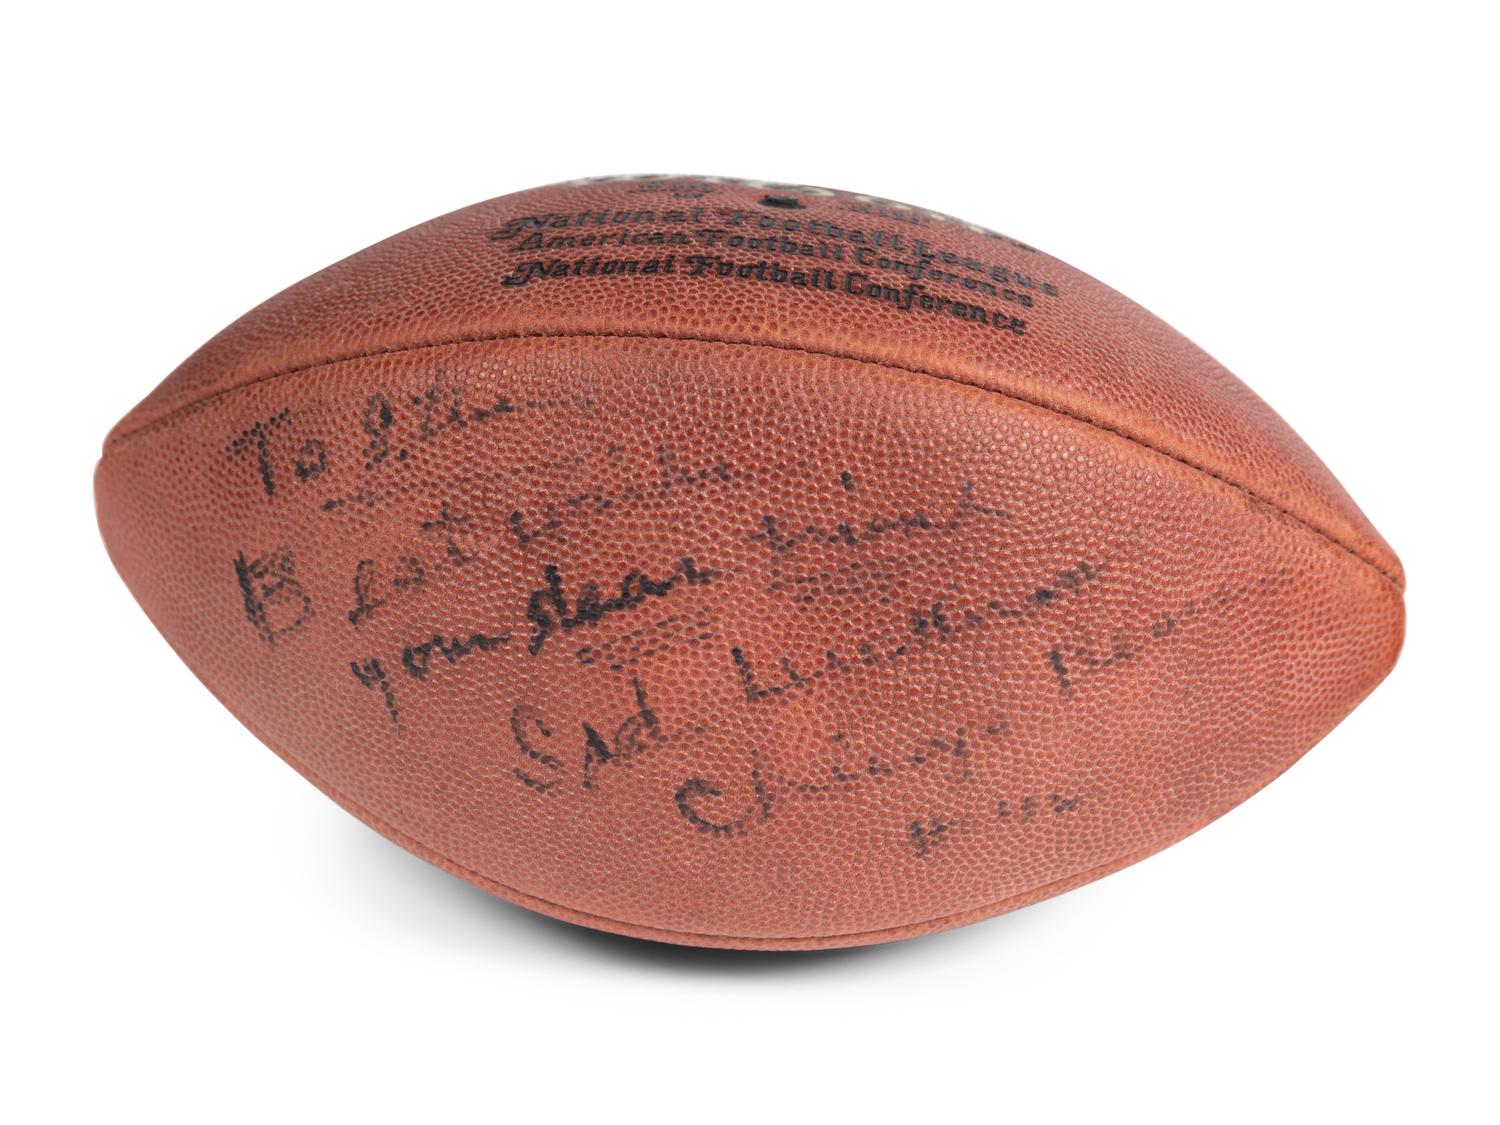 National Football League
American Football Conference
National Football Conference
To
Best wishes
your dear friend
Sid Luckman
Chicago Bears